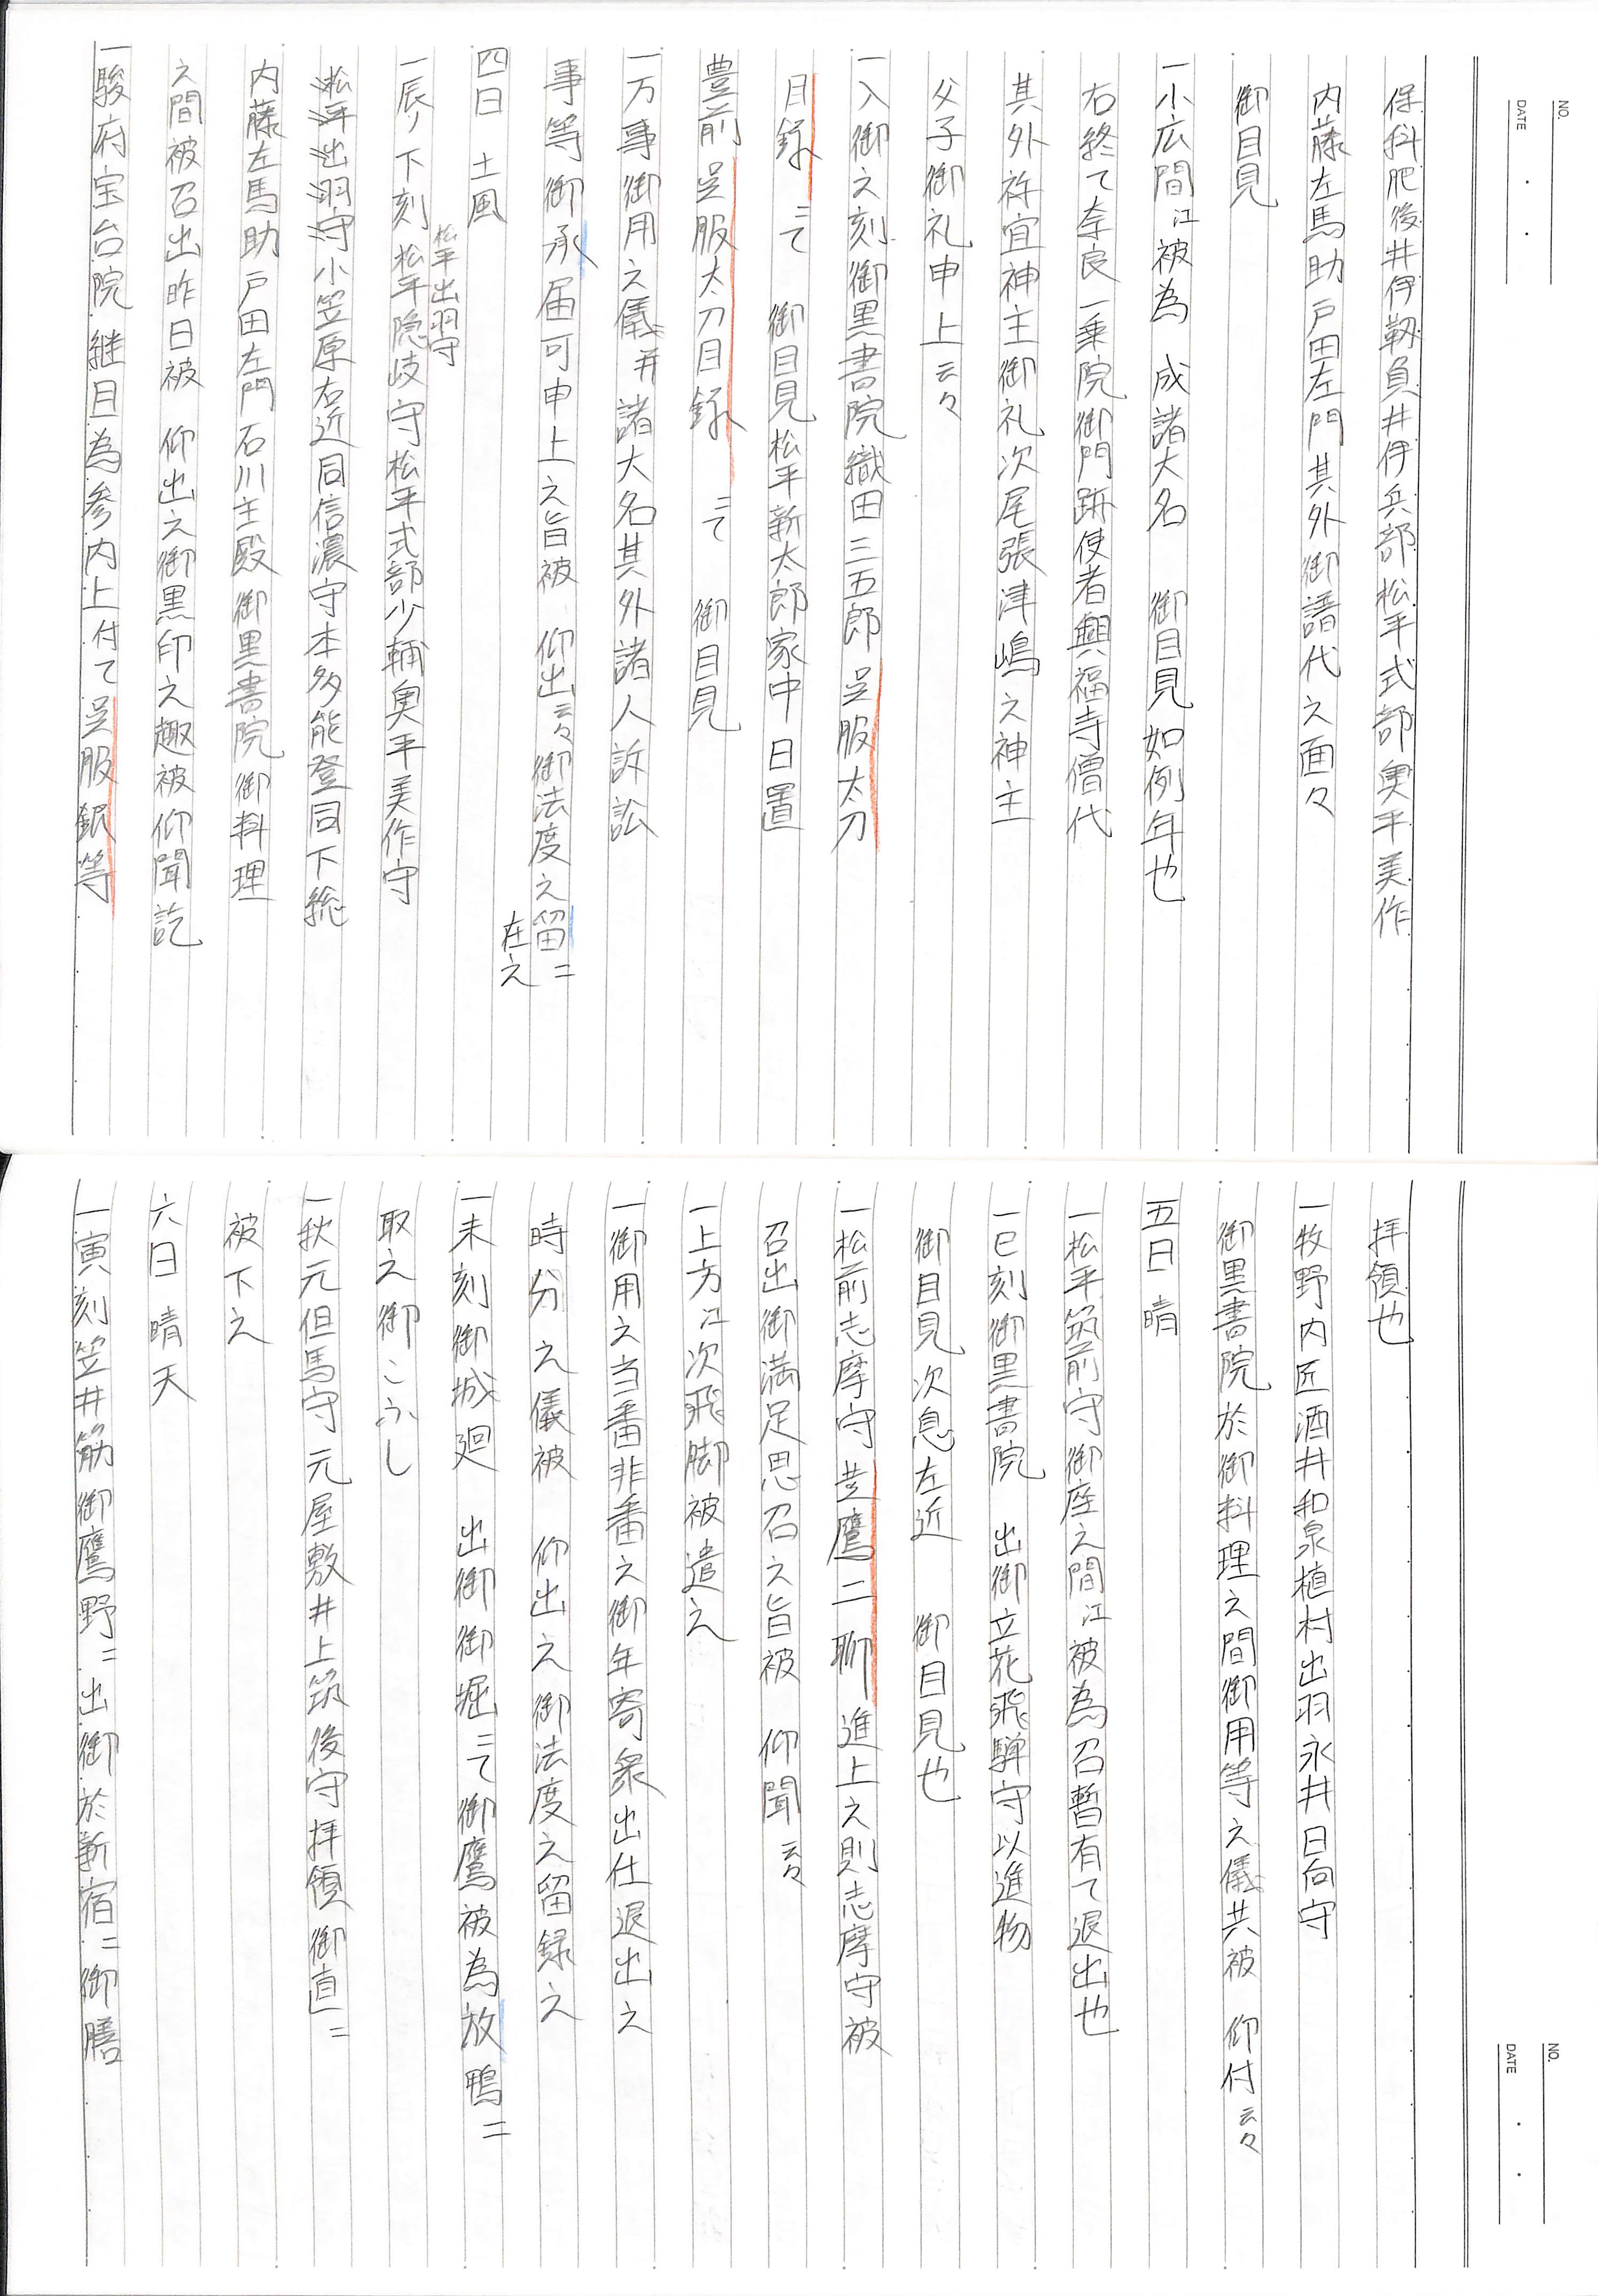 NO.
DATE
保科肥後井伊靱負井伊兵部松平式部奥平美作
内藤左馬助戸田左門其外御譜代之面々
御目見
一小広間江被為 成諸大名 御目見如例年也
右終て奈良一乗院御門跡使者興福寺僧代
其外祢宜神主御礼次尾張津嶋之神主
父子御礼申上云々
一入御之刻御黒書院織田三五郎呉服太刀
目録ニて 御目見松平新太郎家中日置
豊前呉服太刀目録ニて 御目見
一万事御用之儀并諸大名其外諸人訴訟
事等御承届可申上之旨被 仰出云々御法度之留ニ
在之
四日 土風
一辰ノ下刻松平隠岐守松平式部少輔奥平美作守
松平出羽守
松平出羽守小笠原右近同信濃守本多能登同下総
内藤左馬助戸田左門石川主殿御黒書院御料理
之間被召出昨日被 仰出之御黒印之趣被仰聞訖
一駿府宝台院継目為参内上付て呉服銀等
NO.
DATE
拝領也
一牧野内匠酒井和泉植村出羽永井日向守
御黒書院於御料理之間御用等之儀共被 仰付云々
五日 晴
一松平筑前守御座之間江被為召暫有て退出也
一巳刻御黒書院 出御立花飛騨守以進物
御目見次息左近 御目見也
一松前志摩守黄鷹二聯進上之則志摩守被
召出御満足思召之旨被 仰聞云々
一上方江次飛脚被遣之
一御用之当番非番之御年寄衆出仕退出之
時分之儀被 仰出之御法度之留録之
一未刻御城廻 出御御堀ニて御鷹被為放鴨二
取之御こふし
一秋元但馬守元屋敷井上筑後守拝領御直ニ
被下之
六日 晴天
一寅刻笠井筋御鷹野ニ出御於新宿ニ御膳